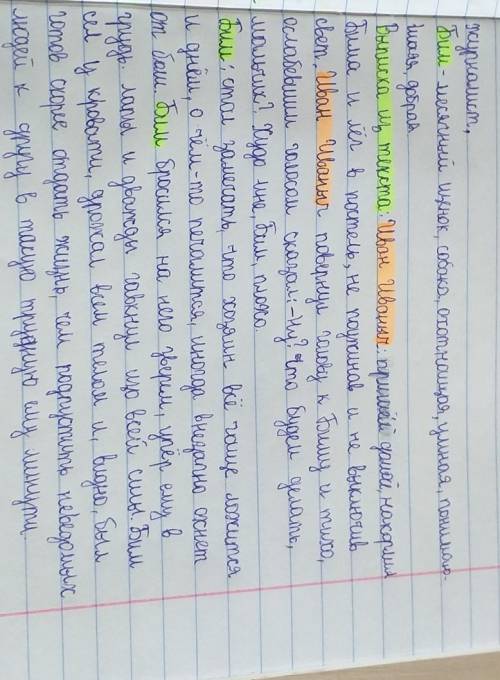 журналист,
Бим - месячный щенок, собака, охотничая, умная, понимаю-
щая, добрая
Выписка из текста: Иван Иваныч: пришёл домой, накормил
Бима и лёг в постель, не поужинав и не выключив
свет, Иван Иваныч повернул голову к Биму и тихо,
ослабевшим голосом сказал: -Ну? Что будем делать,
мальчик? Худо мне, Бим, плохо.
Бим: стал замечать, что хозяин всё чаще ложится
и днём, о чём-то печалится, иногда внезапно охнет
от боли. Бим бросился на него зверем, упёр ему в
грудь лапы и дважды гавкнул изо всей силы. Бим
сел у кровати, дрожал всем телом и, видно, был
готов скорее отдать жизнь, чем подпустить неведомых
людей к другу в такую трудную ему минуту.